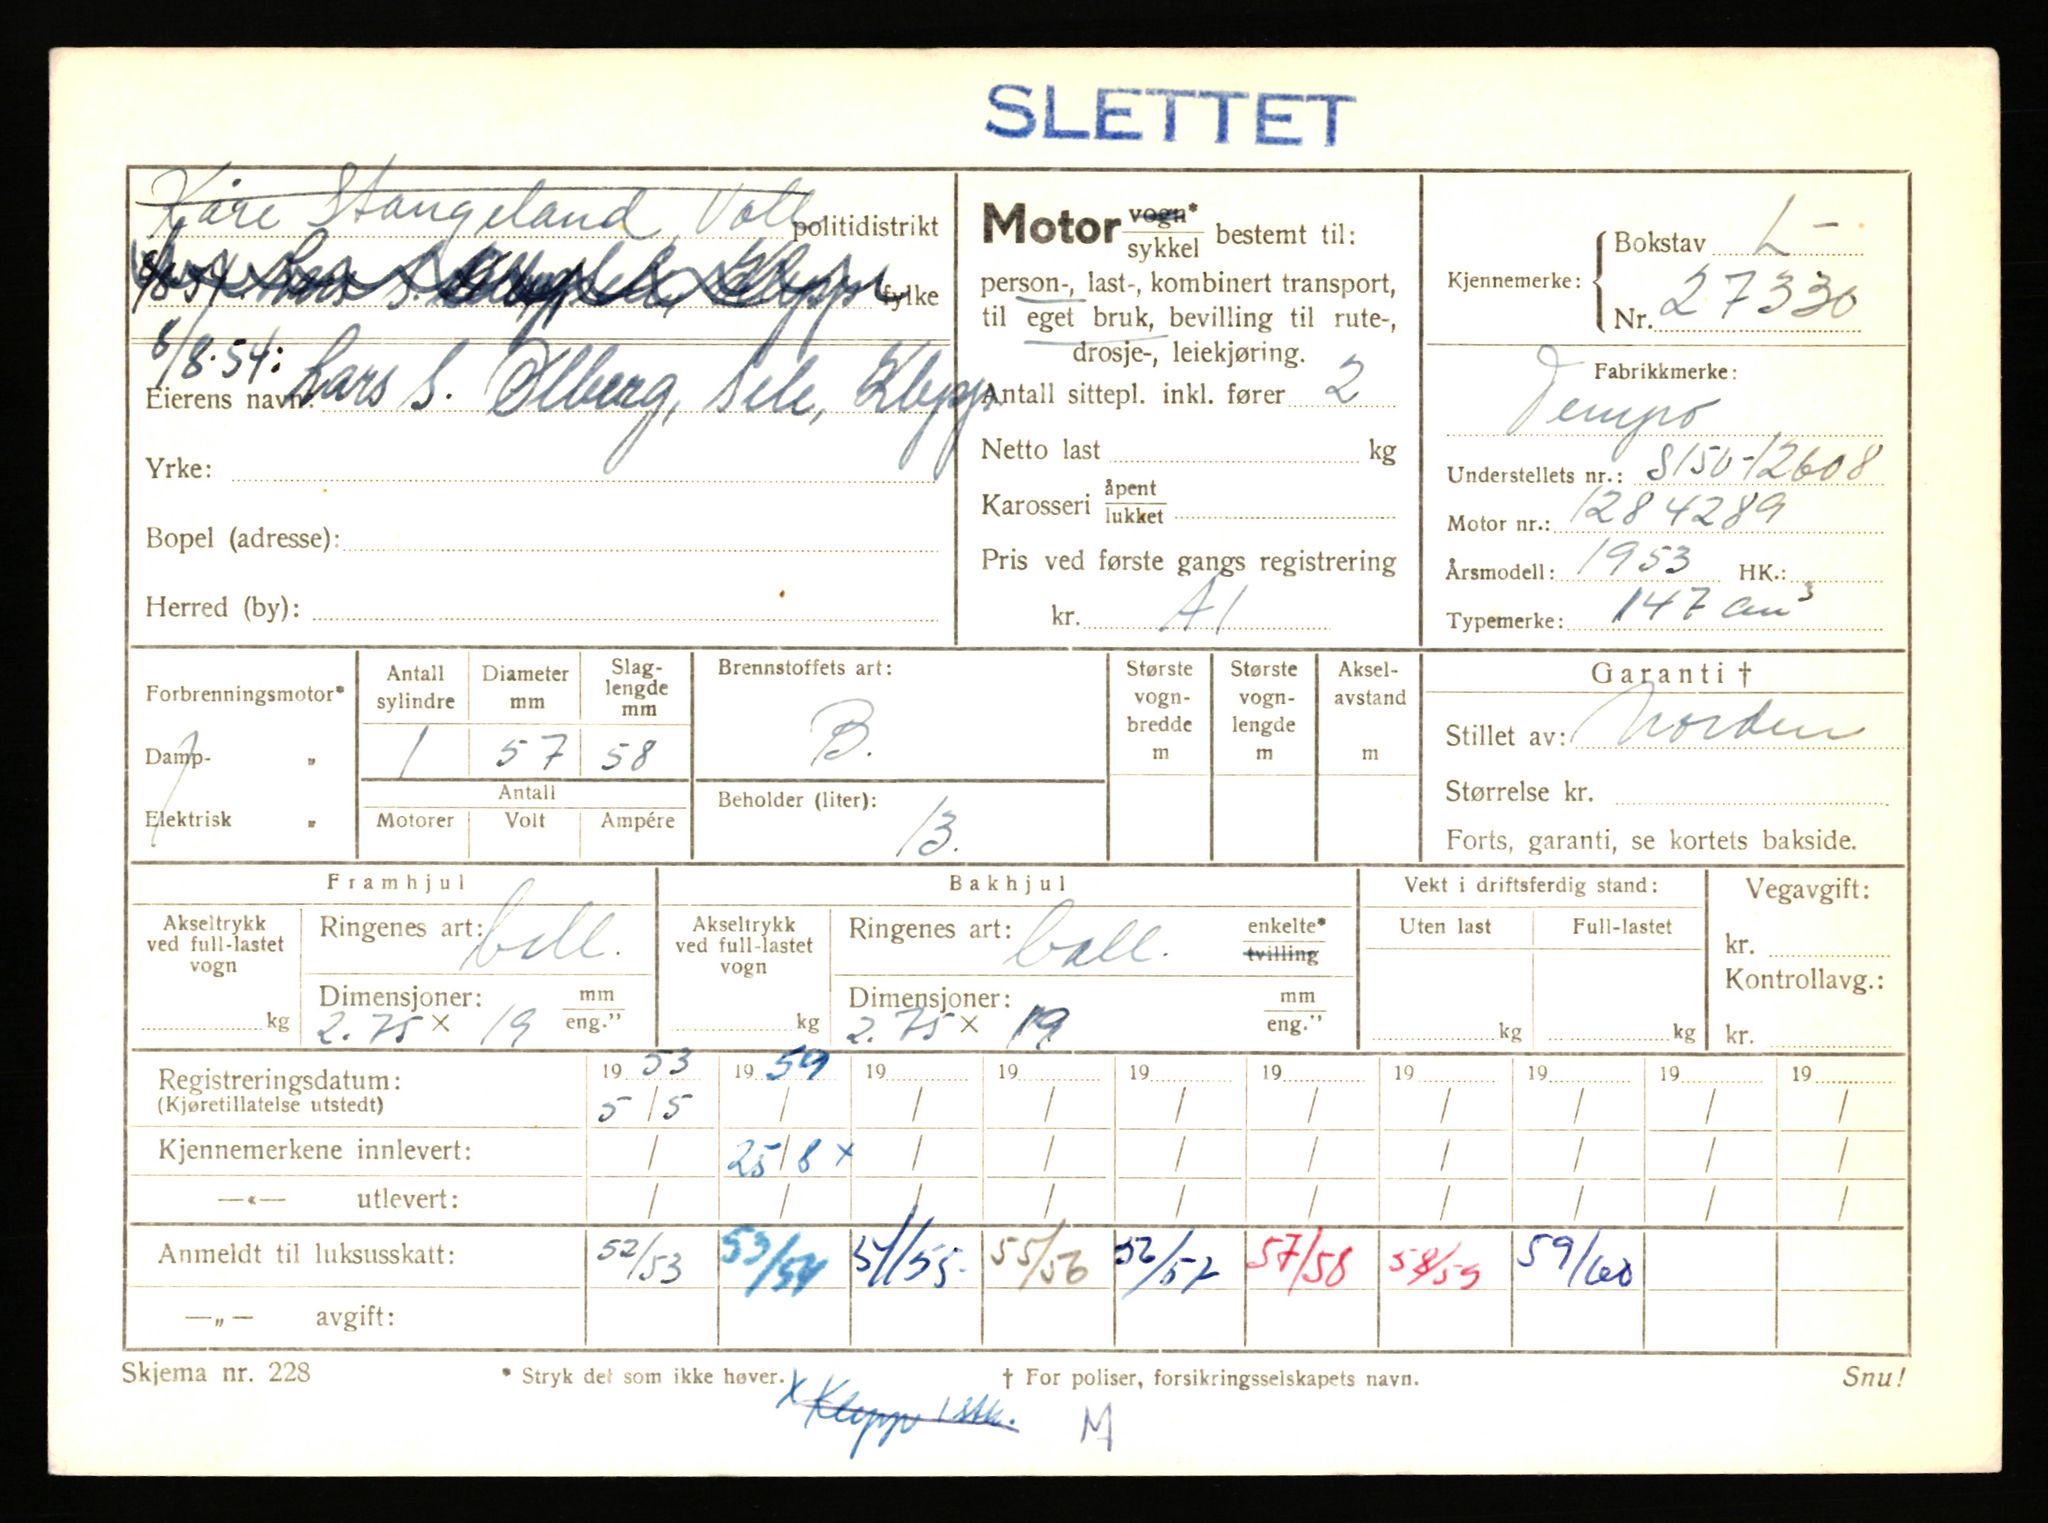 SLETTET
Kåre Stangeland, Voll politidistrikt
fylke
6/8-54:
Eierens navn: Lars S. Ølberg, Sele, Klepp
Yrke:
Bopel (adresse):
Herred (by):
Motor vogn* / sykkel bestemt til:
person-, last-, kombinert transport,
til eget bruk, bevilling til rute-,
drosje-, leiekjøring.
Antall sittepl. inkl. fører 2
Netto last kg
Karosseri åpent / lukket
Pris ved første gangs registrering
kr. A1
Kjennemerke: Bokstav L-
Nr. 27330
Fabrikkmerke:
Tempo
Understellets nr.: S150-12608
Motor nr.: 1284289
Årsmodell: 1953 HK.:
Typemerke: 147 cm³
Forbrenningsmotor*
Damp- „
Elektrisk „
Antall sylindre 1
Diameter mm 57
Slag-lengde mm 58
Antall
Motorer Volt Ampére
Brennstoffets art:
B.
Beholder (liter):
13.
Største vogn-bredde m
Største vogn-lengde m
Aksel-avstand m
Garanti †
Stillet av: Norden
Størrelse kr.
Forts, garanti, se kortets bakside.
Framhjul
Akseltrykk ved full-lastet vogn kg
Ringenes art: ball.
Dimensjoner: mm / eng."
2.75 x 19
Bakhjul
Akseltrykk ved full-lastet vogn kg
Ringenes art: ball. enkelte* / tvilling
Dimensjoner: mm / eng."
2.75 x 19
Vekt i driftsferdig stand:
Uten last Full-lastet
kg kg
Vegavgift:
kr.
Kontrollavg.:
kr.
Registreringsdatum: 19 53 19 59 19 19 19 19 19 19 19 19
(Kjøretillatelse utstedt) 5/5 / / / / / / / / /
Kjennemerkene innlevert: / 25/8 x / / / / / / / /
—«— utlevert: / / / / / / / / / /
Anmeldt til luksusskatt: 52/53 53/54 54/55 55/56 56/57 57/58 58/59 59/60
—„— avgift:
Skjema nr. 228 * Stryk det som ikke høver. † For poliser, forsikringsselskapets navn. Snu!
x Klepp 1 stk. M